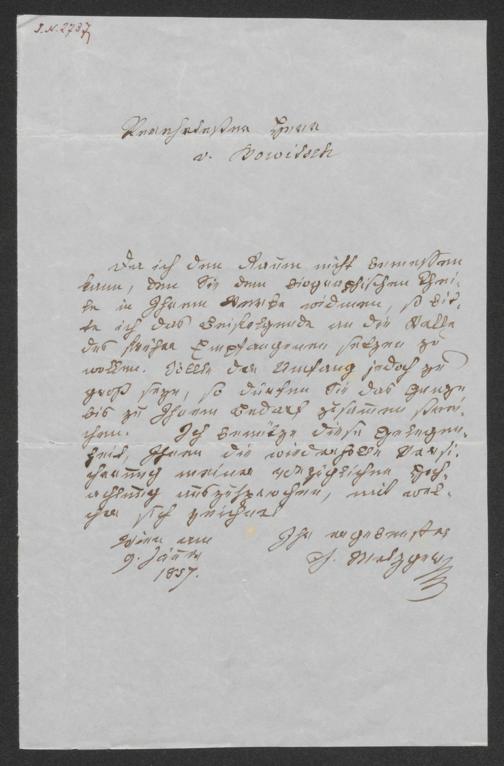 I.N. 2737
Verehrtester Herr
v. Bowitsch
Da ich den Raum nicht bemessen
kann, den Sie dem biographischen Thei-
le in Ihrem Werke widmen, so bit-
te ich das Beifolgende an die Stelle
des früher Empfangenen setzen zu
wollen. Sollte der Umfang jedoch zu
groß seyn, so dürfen Sie das Ganze
bis zu Ihrem Bedarf zusammen strei-
chen. Ich benütze diese Gelegen-
heit, Ihnen die wiederholte Versi-
cherung meiner vorzüglichen Hoch-
achtung auszusprechen, mit wel-
cher sich zeichnet
Wien am
9. Jäner
1857.
Ihr ergebenster
J. Metzger